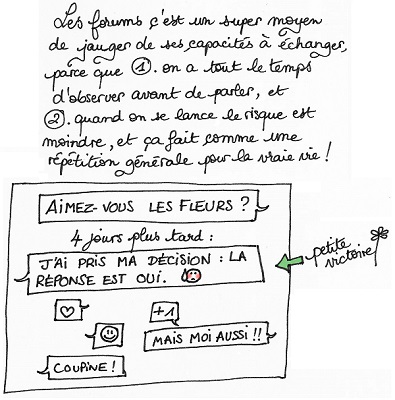 Les forums c'est un super moyen
de jauger de ses capacités à échanger,
parce que 1. on a tout le temps
d'observer avant de parler, et
2. quand on se lance le risque est
moindre, et ça fait comme une
répétition générale pour la vraie vie !
AIMEZ-VOUS LES FLEURS ?
4 jours plus tard :
J'AI PRIS MA DÉCISION : LA
RÉPONSE EST OUI.
petite
victoire
+1
MAIS MOI AUSSI !!
COUPINE !